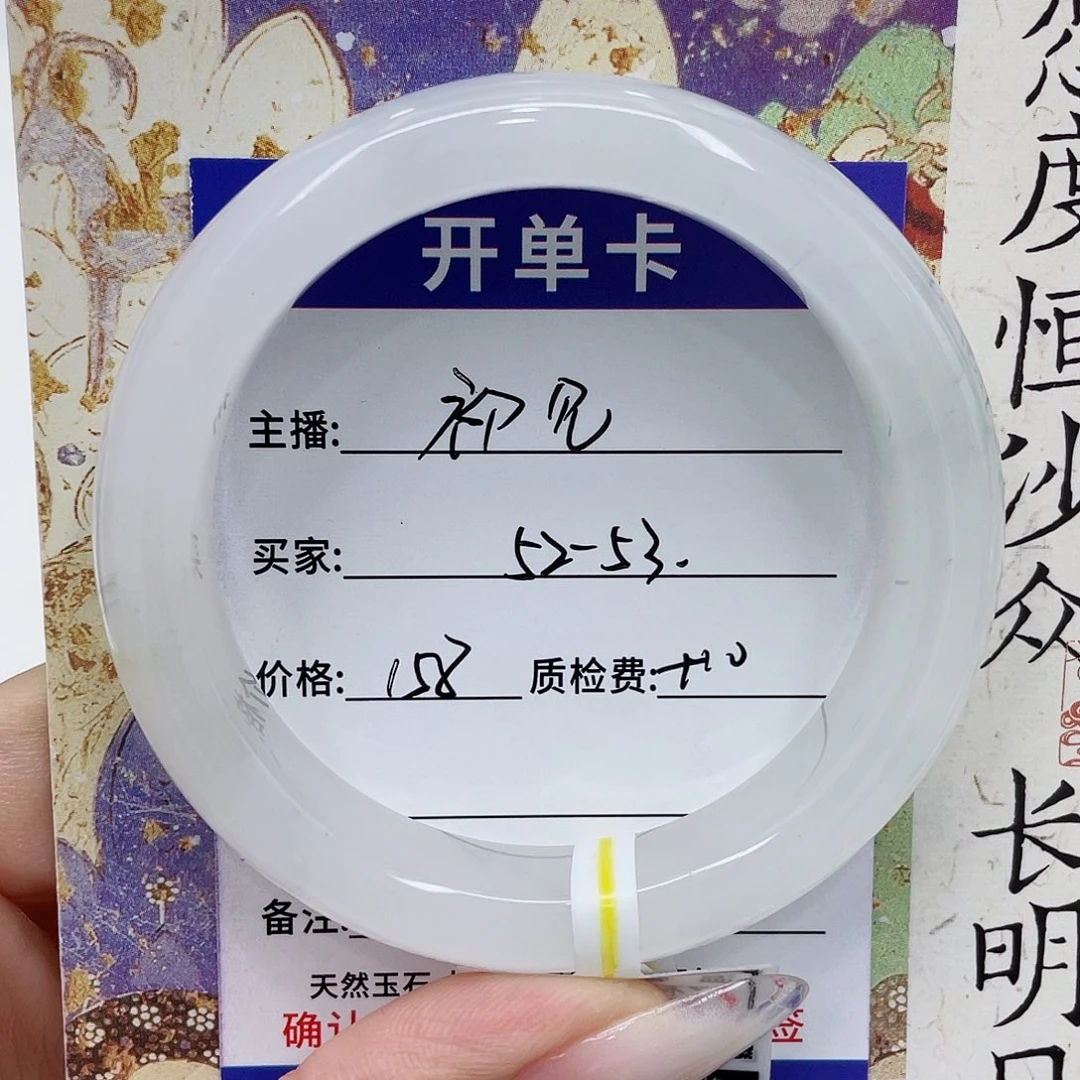 开单卡
主播: 初见
买家: 52-53.
价格: 158 质检费: +10
备注:
天然玉石
确认
签
度恒沙众
长明